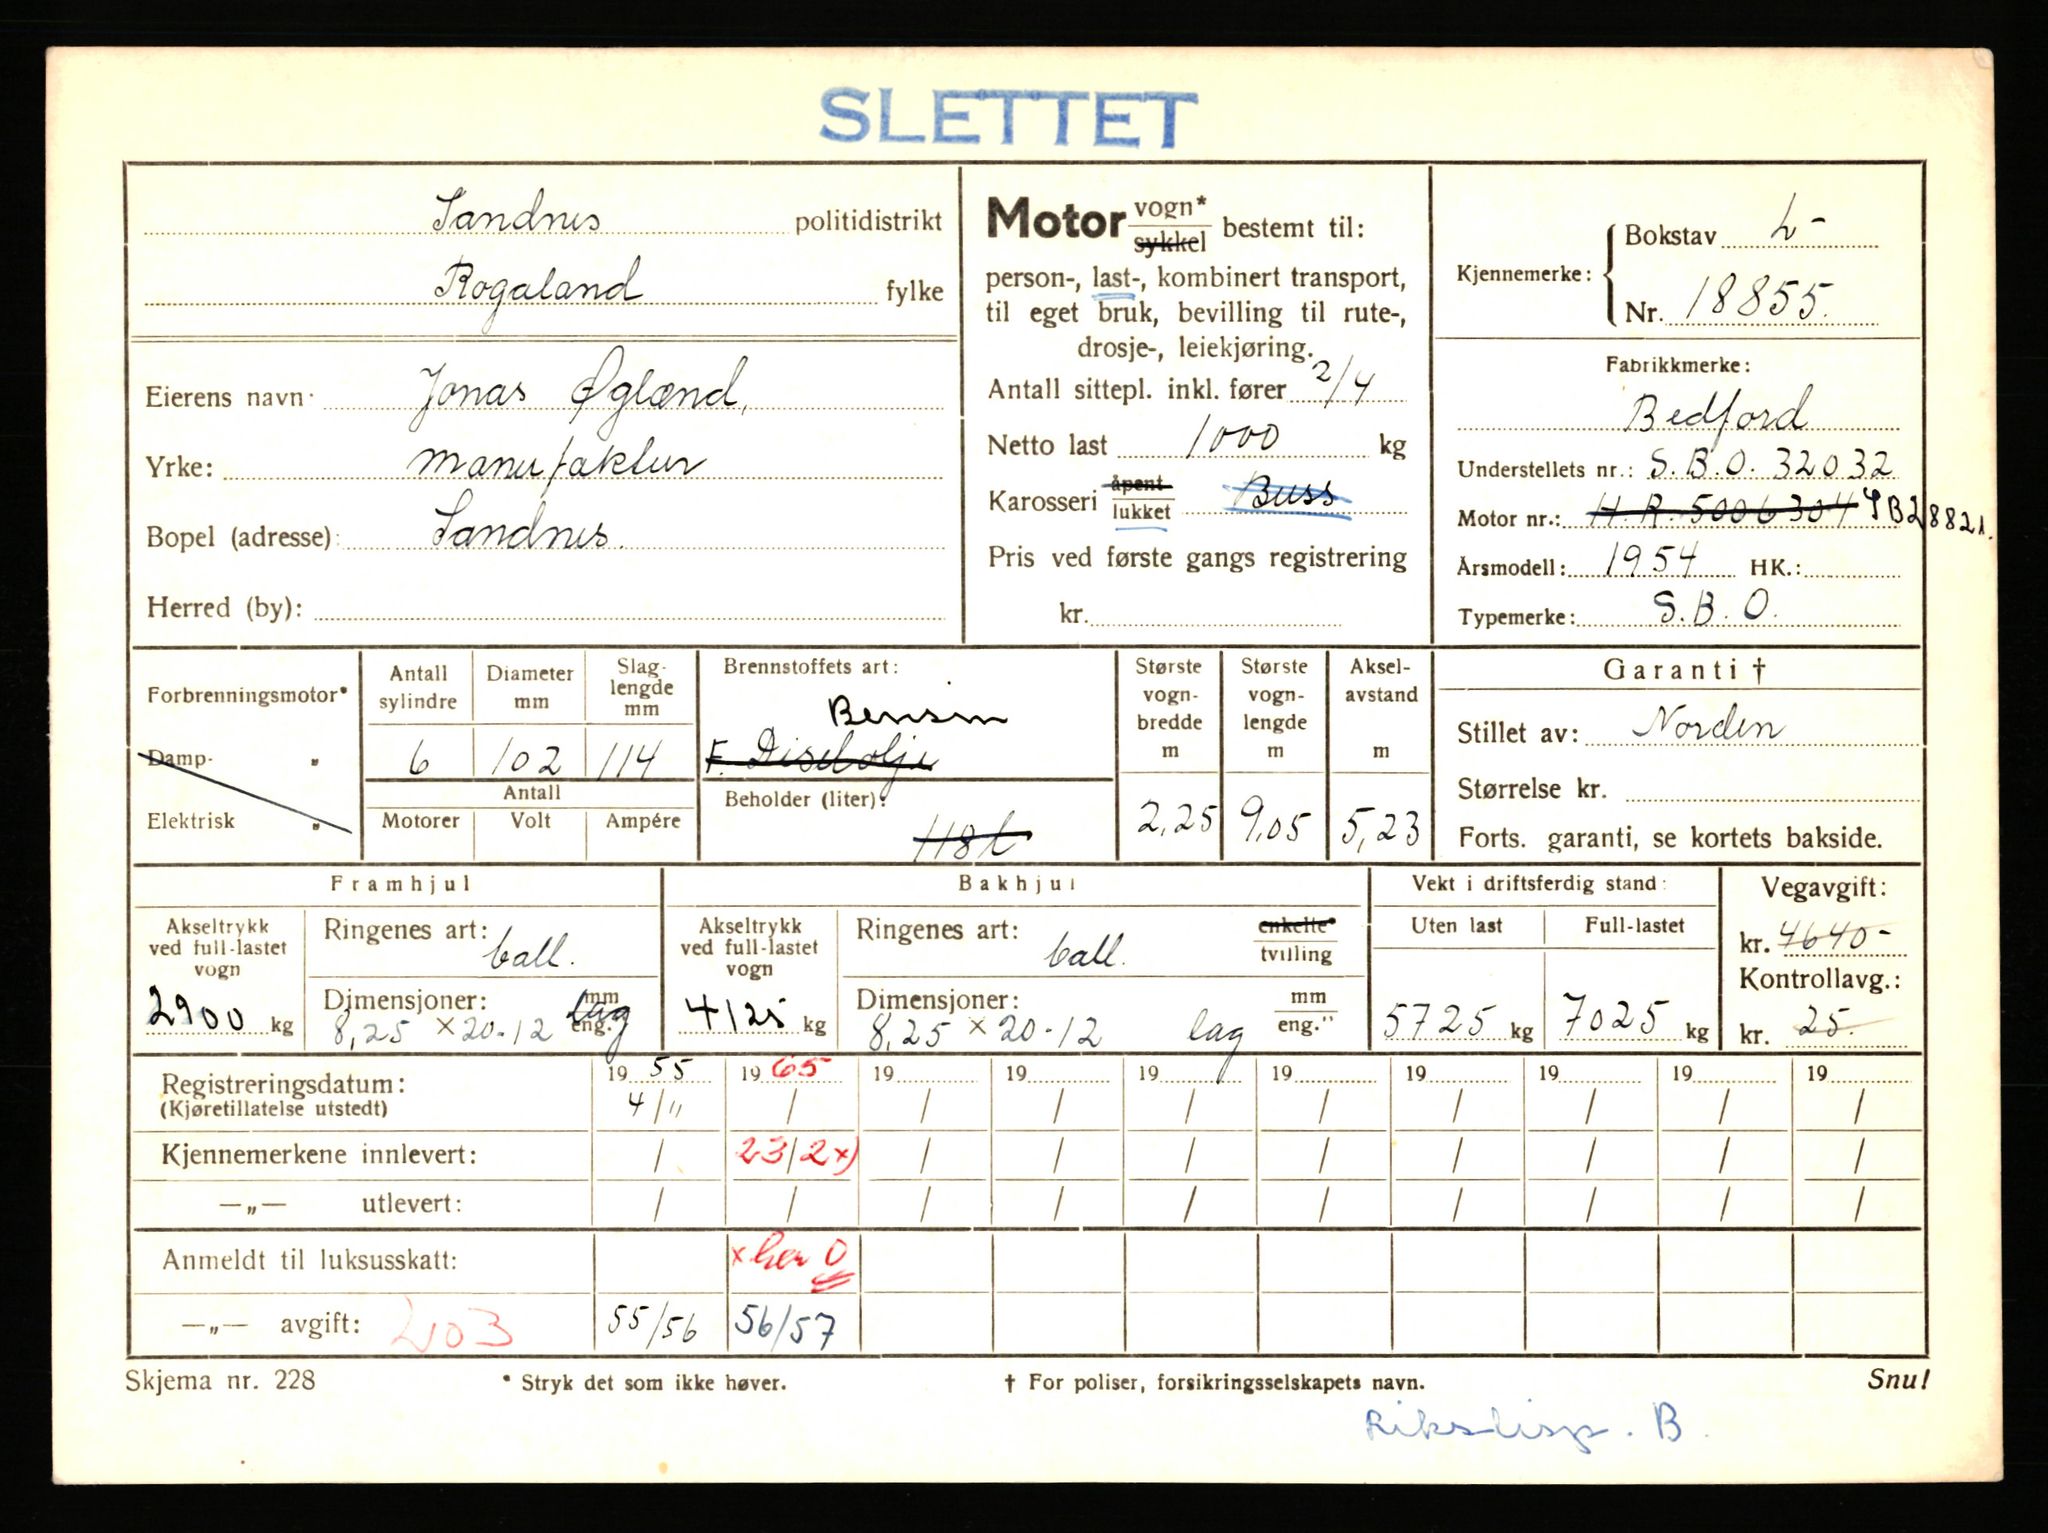 SLETTET
Sandnes politidistrikt
Rogaland fylke
Eierens navn: Jonas Øglænd,
Yrke: manufaktur
Bopel (adresse): Sandnes.
Herred (by):
Motor vogn* / sykkel bestemt til:
person-, last-, kombinert transport,
til eget bruk, bevilling til rute-,
drosje-, leiekjøring.
Antall sittepl. inkl. fører 2/4
Netto last 1000 kg
Karosseri åpent / lukket Buss
Pris ved første gangs registrering
kr.
Kjennemerke: Bokstav L-
Nr. 18855.
Fabrikkmerke:
Bedford
Understellets nr.: S.B.O. 32032
Motor nr.: H.R. 5006304 SB28821.
Årsmodell: 1954 HK.:
Typemerke: S.B.O.
Forbrenningsmotor*
Damp- „
Elektrisk „
Antall sylindre Diameter mm Slaglengde mm
6 102 114
Antall
Motorer Volt Ampére
Brennstoffets art:
Bensin
F. Diselolje
Beholder (liter):
118 l
Største vognbredde m
2,25
Største vognlengde m
9,05
Akselavstand m
5,23
Garanti †
Stillet av: Norden
Størrelse kr.
Forts. garanti, se kortets bakside.
Framhjul
Akseltrykk ved full-lastet vogn
2900 kg
Ringenes art: ball.
Dimensjoner: mm / eng.
8,25 × 20-12 lag
Bakhjul
Akseltrykk ved full-lastet vogn
4125 kg
Ringenes art: ball. enkelte* / tvilling
Dimensjoner: mm / eng."
8,25 × 20-12 lag
Vekt i driftsferdig stand:
Uten last Full-lastet
5725 kg 7025 kg
Vegavgift:
kr. 4640-
Kontrollavg.:
kr. 25.
Registreringsdatum: 19 55 19 65 19 19 19 19 19 19 19 19
(Kjøretillatelse utstedt) 4/11 / / / / / / / / /
Kjennemerkene innlevert: / 23/2 x) / / / / / / / /
—„— utlevert: / / / / / / / / / /
Anmeldt til luksusskatt: × her 0
—„— avgift: 203 55/56 56/57
Skjema nr. 228 * Stryk det som ikke høver. † For poliser, forsikringsselskapets navn. Snu!
B